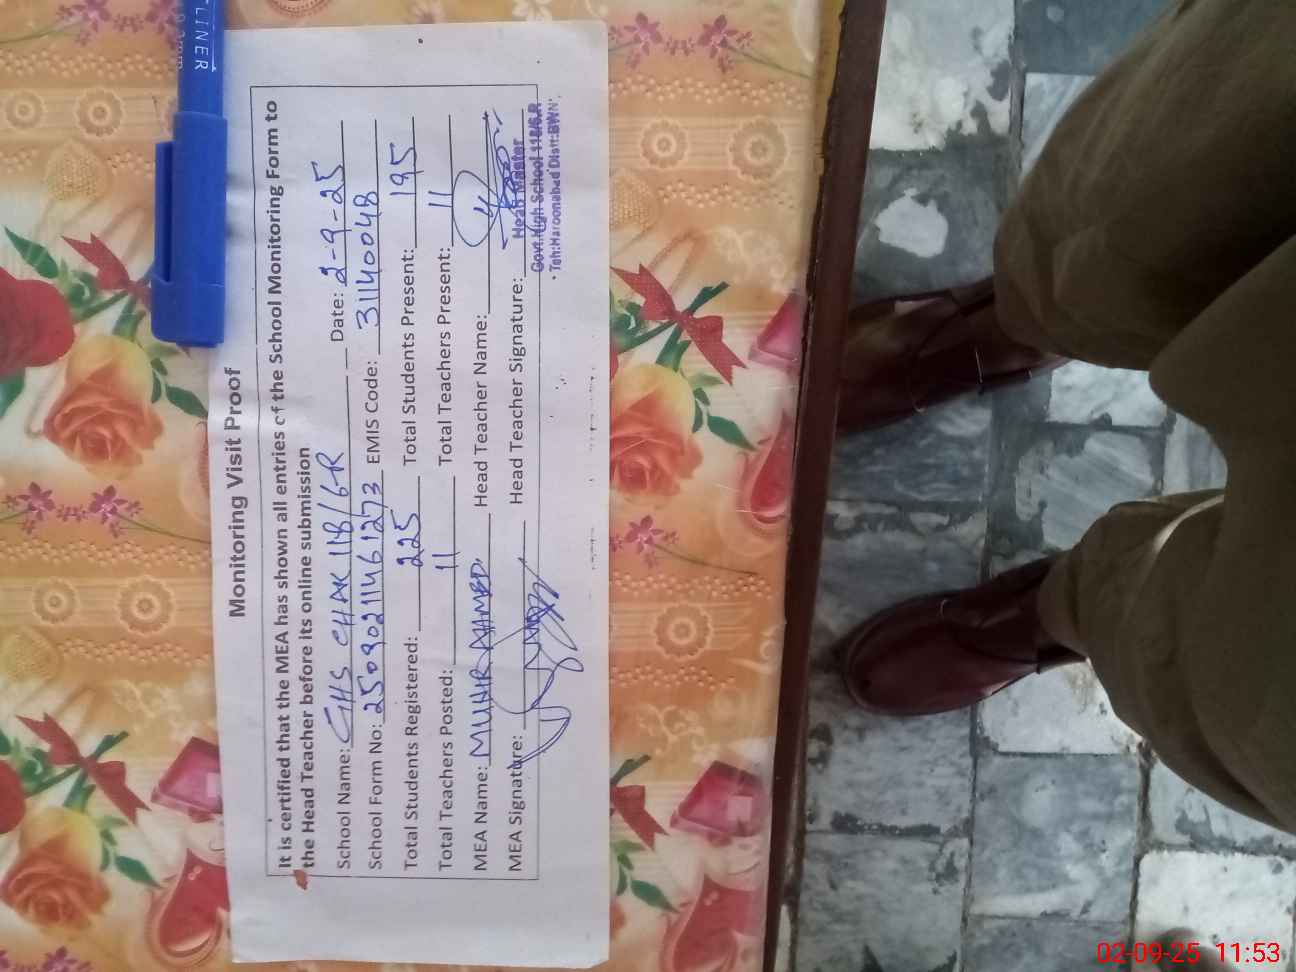 LINER
Monitoring Visit Proof
It is certified that the MEA has shown all entries of the School Monitoring Form to
the Head Teacher before its online submission
School Name: GHS CHAK 118/6-R Date: 2-9-25
School Form No: 25090211461273 EMIS Code: 31140048
Total Students Registered: 225 Total Students Present: 195
Total Teachers Posted: 11 Total Teachers Present: 11
MEA Name: MUNIR AHMED Head Teacher Name:
MEA Signature: Head Teacher Signature:
Head Master
Govt.High School 118/6.R
Teh:Haroonabad Distt:BWN
02-09-25 11:53